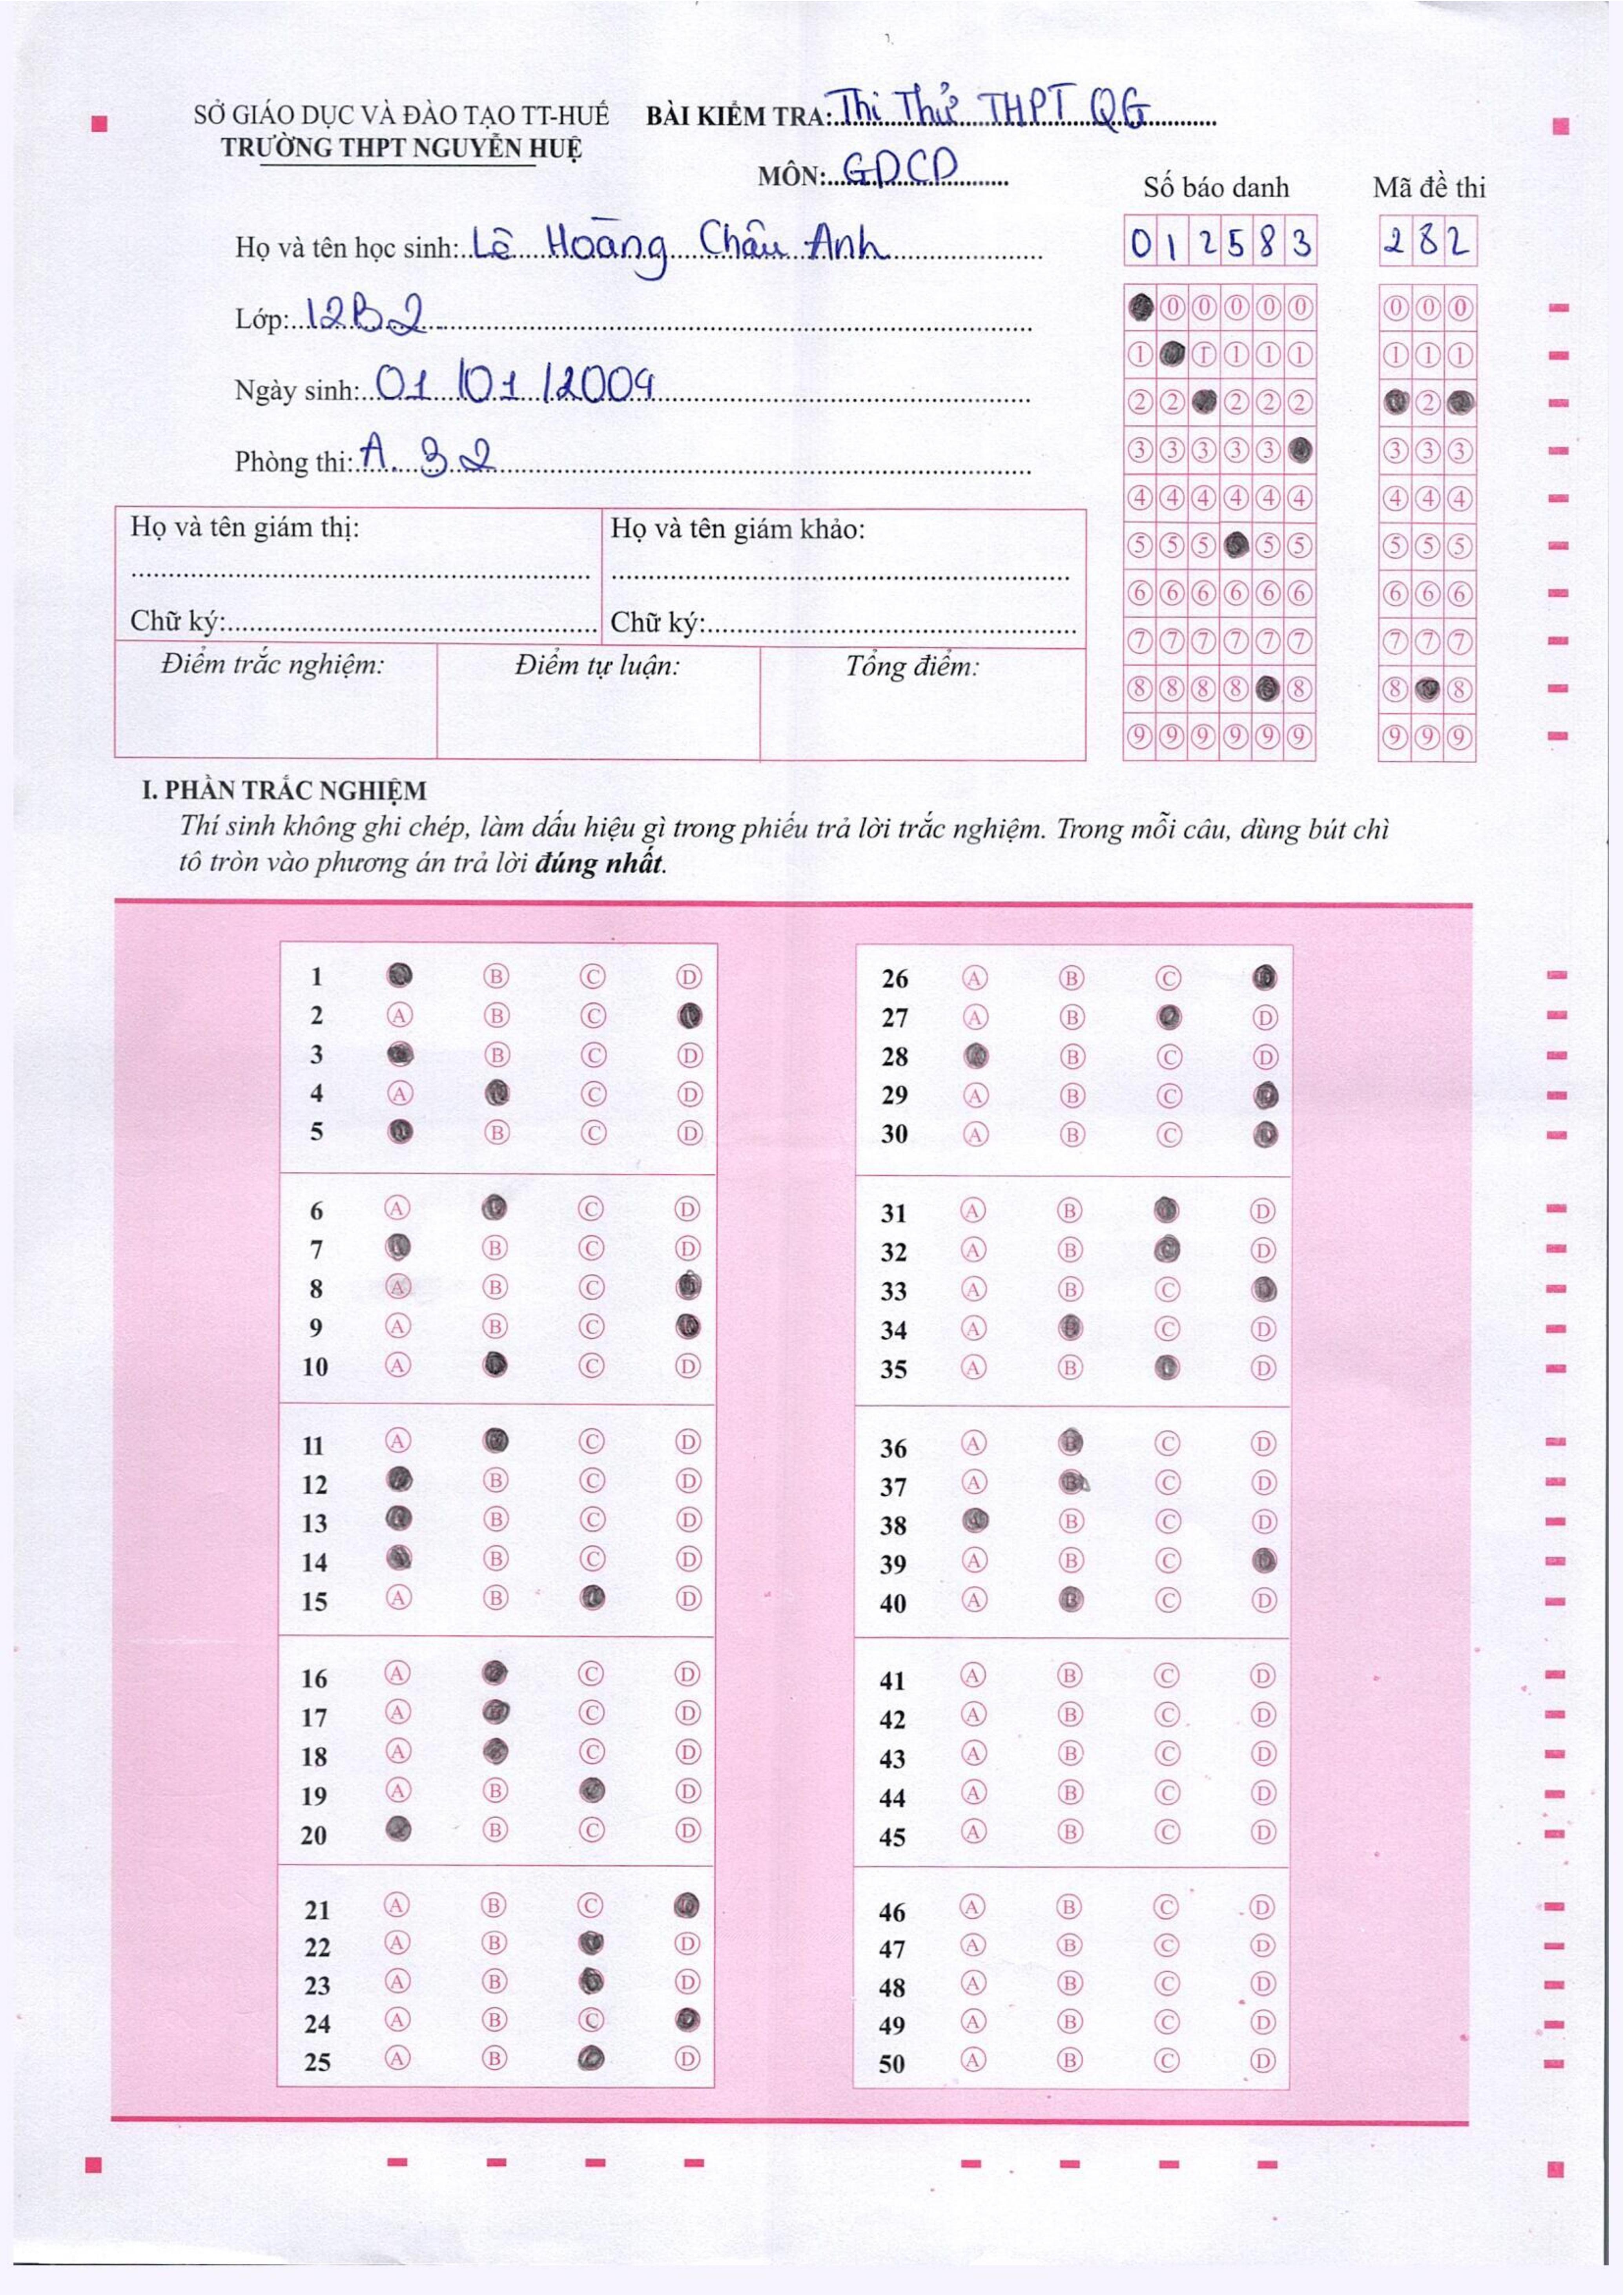 SỞ GIÁO DỤC VÀ ĐÀO TẠO TT-HUẾ
TRƯỜNG THPT NGUYỄN HUỆ
BÀI KIỂM TRA: Thi Thử THPT QG
MÔN: GDCD
Họ và tên học sinh: Lê Hoàng Châu Anh
Lớp: 12B2
Ngày sinh: 01/01/2004
Phòng thi: A.32
Số báo danh
0 1 2 5 8 3
Mã đề thi
2 8 2
0 0 0 0 0 0 0 0
1 1 1 1 1 1 1 1
2 2 2 2 2 2
3 3 3 3 3 3 3 3
4 4 4 4 4 4 4 4 4
5 5 5 5 5 5 5 5
6 6 6 6 6 6 6 6 6
7 7 7 7 7 7 7 7 7
8 8 8 8 8 8 8
9 9 9 9 9 9 9 9 9
Họ và tên giám thị:
Chữ ký:
Họ và tên giám khảo:
Chữ ký:
Điểm trắc nghiệm:
Điểm tự luận:
Tổng điểm:
I. PHẦN TRẮC NGHIỆM
Thí sinh không ghi chép, làm dấu hiệu gì trong phiếu trả lời trắc nghiệm. Trong mỗi câu, dùng bút chì
tô tròn vào phương án trả lời đúng nhất.
1 B C D
2 A B C
3 B C D
4 A C D
5 B C D
6 A C D
7 B C D
8 A B C
9 A B C
10 A C D
11 A C D
12 B C D
13 B C D
14 B C D
15 A B D
16 A C D
17 A C D
18 A C D
19 A B D
20 B C D
21 A B C
22 A B D
23 A B D
24 A B C
25 A B D
26 A B C
27 A B D
28 B C D
29 A B C
30 A B C
31 A B D
32 A B D
33 A B C
34 A C D
35 A B D
36 A B C D
37 A B C D
38 B C D
39 A B C
40 A B C D
41 A B C D
42 A B C D
43 A B C D
44 A B C D
45 A B C D
46 A B C D
47 A B C D
48 A B C D
49 A B C D
50 A B C D